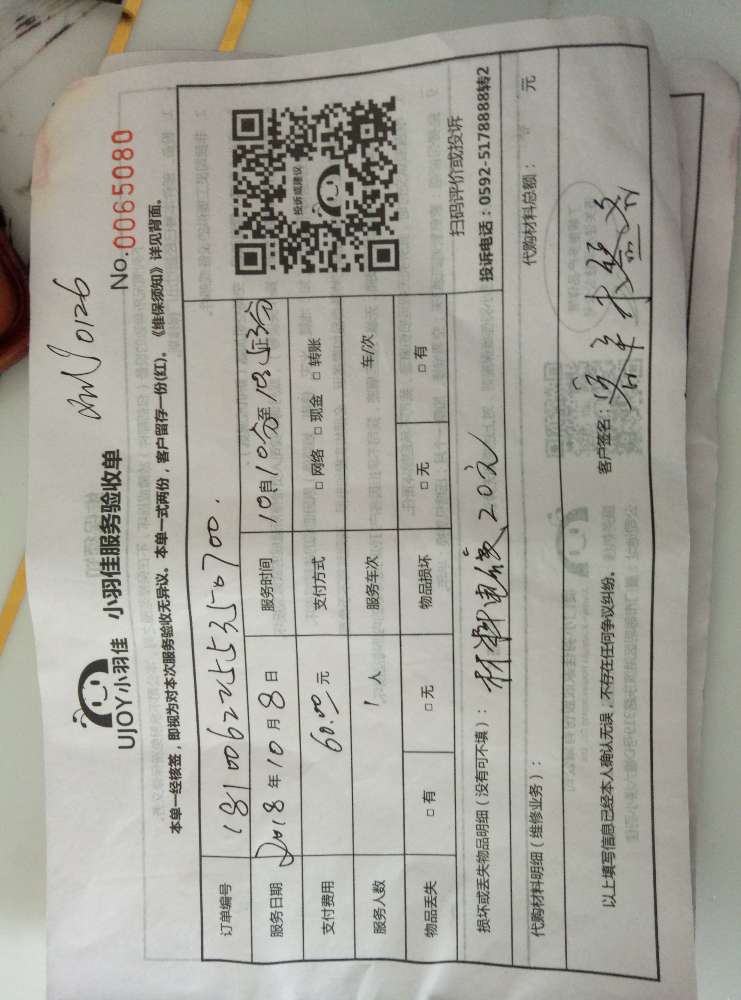 UJOY小羽佳 小羽佳服务验收单
0126
No.0065080
本单一经核签，即视为对本次服务验收无异议。本单一式两份，客户留存一份(红)。《维保须知》详见背面。
订单编号
服务日期 2018年10月8日 服务时间 自 至
支付费用 60.00元 支付方式 □网络 □现金 □转账
服务人数 1人 服务车次 车/次
物品丢失 □有 □无 物品损坏 □无 □有
投诉或建议
扫码评价或投诉
投诉电话：0592-5178888转2
损坏或丢失物品明细（没有可不填）： 材料电线20元
代购材料明细（维修业务）： 代购材料总额： 元
以上填写信息已经本人确认无误，不存在任何争议纠纷。 客户签名：